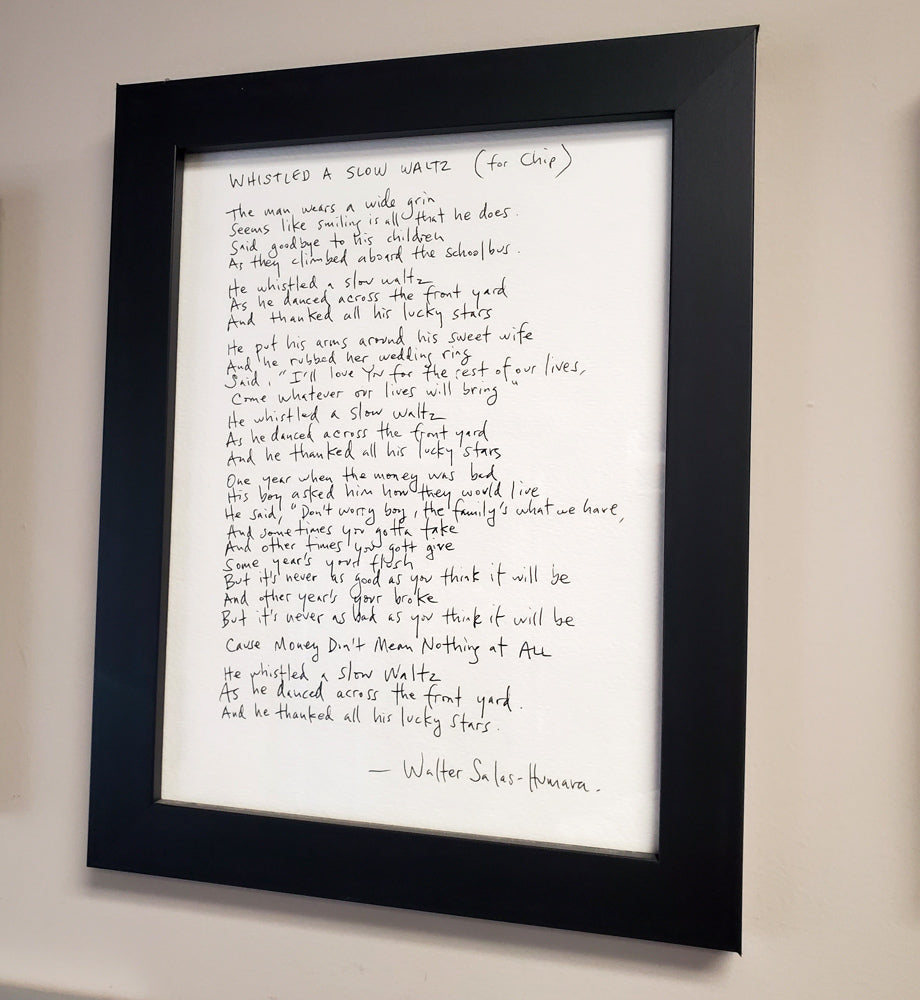 WHISTLED A SLOW WALTZ (for Chip)
The man wears a wide grin
Seems like smiling is all that he does.
Said goodbye to his children
As they climbed aboard the schoolbus.
He whistled a slow waltz
As he danced across the front yard
And thanked all his lucky stars
He put his arms around his sweet wife
And he rubbed her wedding ring
Said, "I'll love You for the rest of our lives,
Come whatever our lives will bring"
He whistled a slow waltz
As he danced across the front yard
And he thanked all his lucky stars
One year when the money was bad
His boy asked him how they would live
He said, "Don't worry boy, the family's what we have,
And sometimes you gotta take
And other times you gott give
Some year's your flush
But it's never as good as you think it will be
And other year's your broke
But it's never as bad as you think it will be
Cause Money Don't Mean Nothing at ALL
He whistled a slow Waltz
As he danced across the front yard.
And he thanked all his lucky stars.
— Walter Salas-Humara.